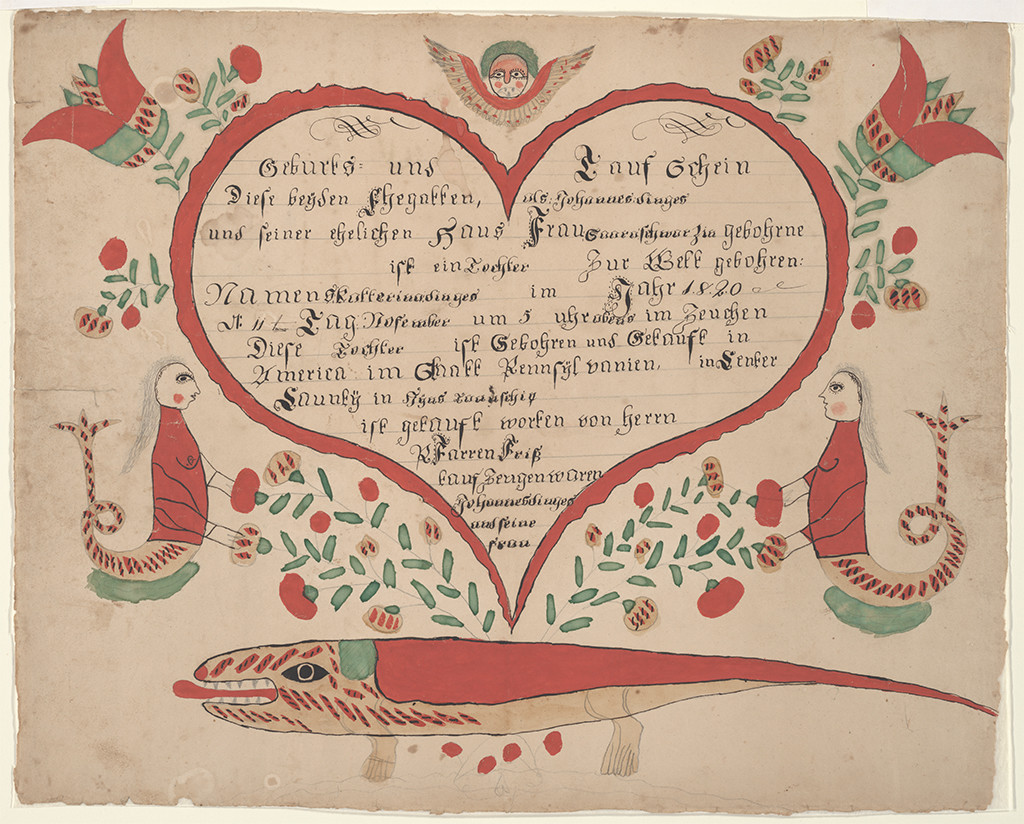 Geburts= und Tauf Schein
Diese beyden Ehegatten, als: Johannes dinges
und seiner ehelichen Haus Frau Saara schwarzin gebohrne
ist ein Tochter Zur Welt gebohren:
Namens Katterina dinges im Jahr 1820
d 11 Tag Nofember um 5 uhr obens im Zeuchen
Diese Tochter ist Gebohren und Getauft in
America im Staat Pennsylvanien, in Center
Caunty in
ist getauft worten von herrn
Pfarren Friß
tauf Zeugen waren
Johannes dinges
und seine
frau